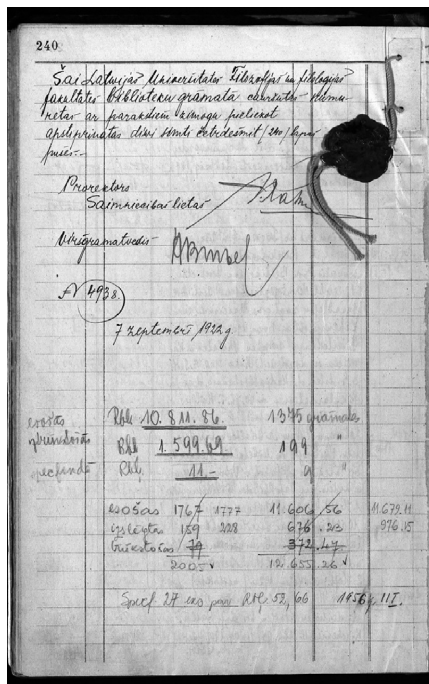 240
Šai Latvijas Universitates Filozofijas un filologijas
fakultates bibliotekas grāmatā cauršūtas numu-
retas ar parakstiem zimogu pieliekot
apstiprinatas divi simti četrdesmit /240/ lapas
puses.-
Prorektors
Saimniecibas lietās
Virsgramatvedis
N 4938.
7 septembrī 1922 g.
esošās Rbļ. 10.811.86. 1375 grāmatas
Rbļ. 1.599.69 199 "
Rbļ. 11.- 9 "
esošas 1767 1777 11.606.56 11.679.11
izslēgtas 159 228 676.23 976.15
Trūkstošas 79 372.47
2005 12.655.26
27 Rbļ 52,66 1956 g. III.